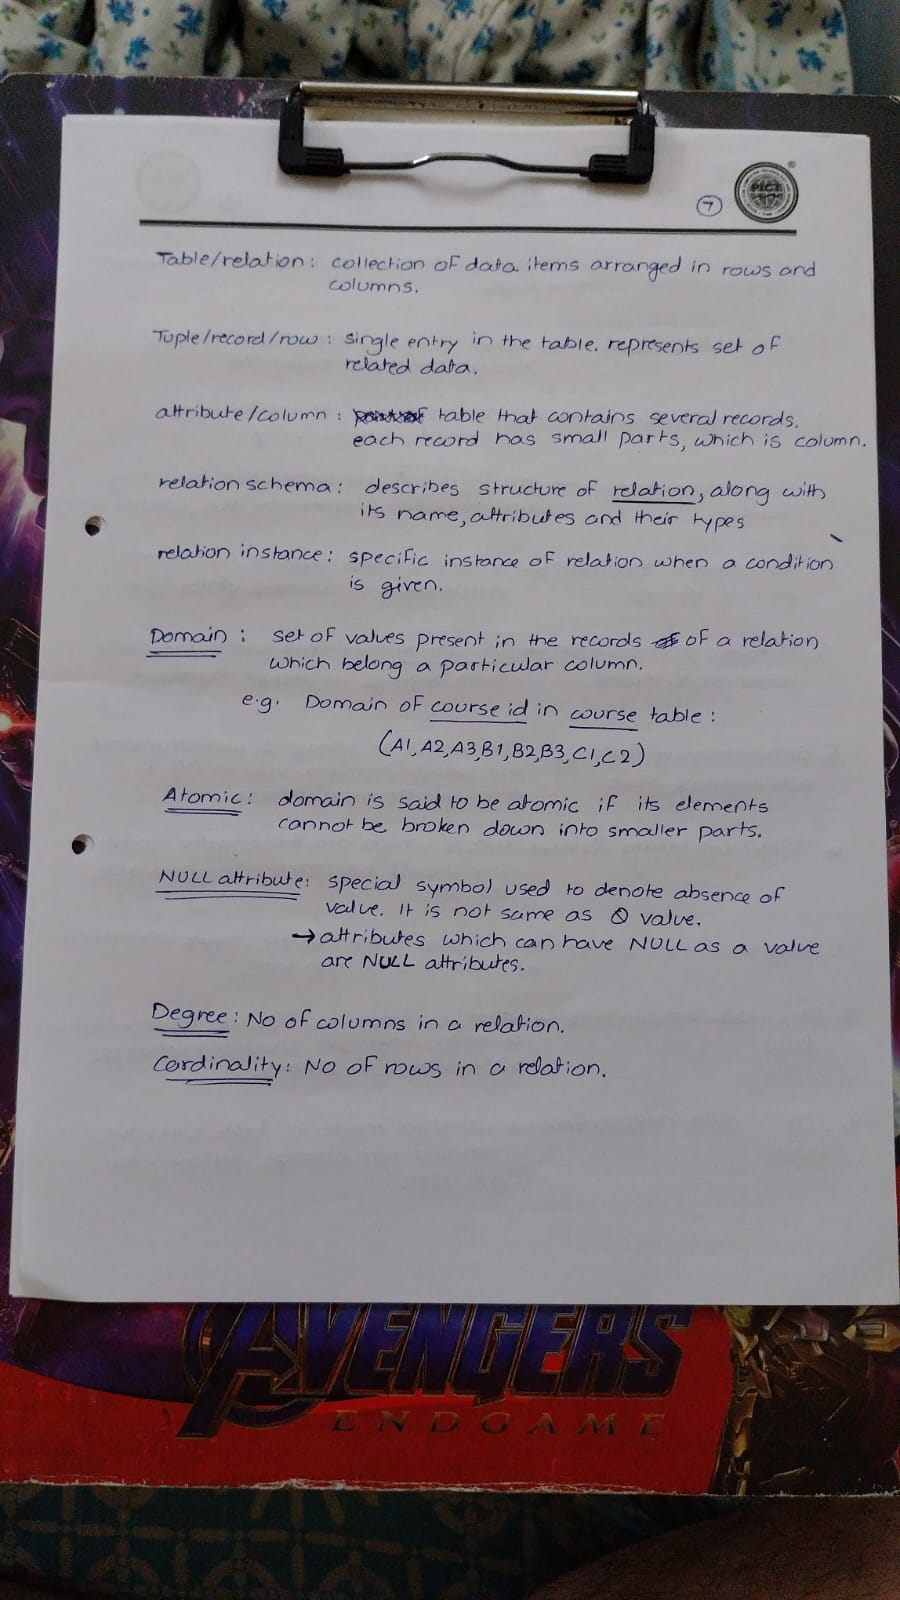 7
PICT
Table/relation: collection of data items arranged in rows and
columns.
Tuple/record/row: single entry in the table. represents set of
related data.
attribute/column: table that contains several records.
each record has small parts, which is column.
relation schema: describes structure of relation, along with
its name, attributes and their types
relation instance: specific instance of relation when a condition
is given.
Domain: set of values present in the records of a relation
which belong a particular column.
e.g. Domain of course id in course table:
(A1, A2, A3, B1, B2, B3, C1, C2)
Atomic: domain is said to be atomic if its elements
cannot be broken down into smaller parts.
NULL attribute: special symbol used to denote absence of
value. It is not same as 0 value.
→ attributes which can have NULL as a value
are NULL attributes.
Degree: No of columns in a relation.
Cardinality: No of rows in a relation.
AVENGERS
ENDGAME